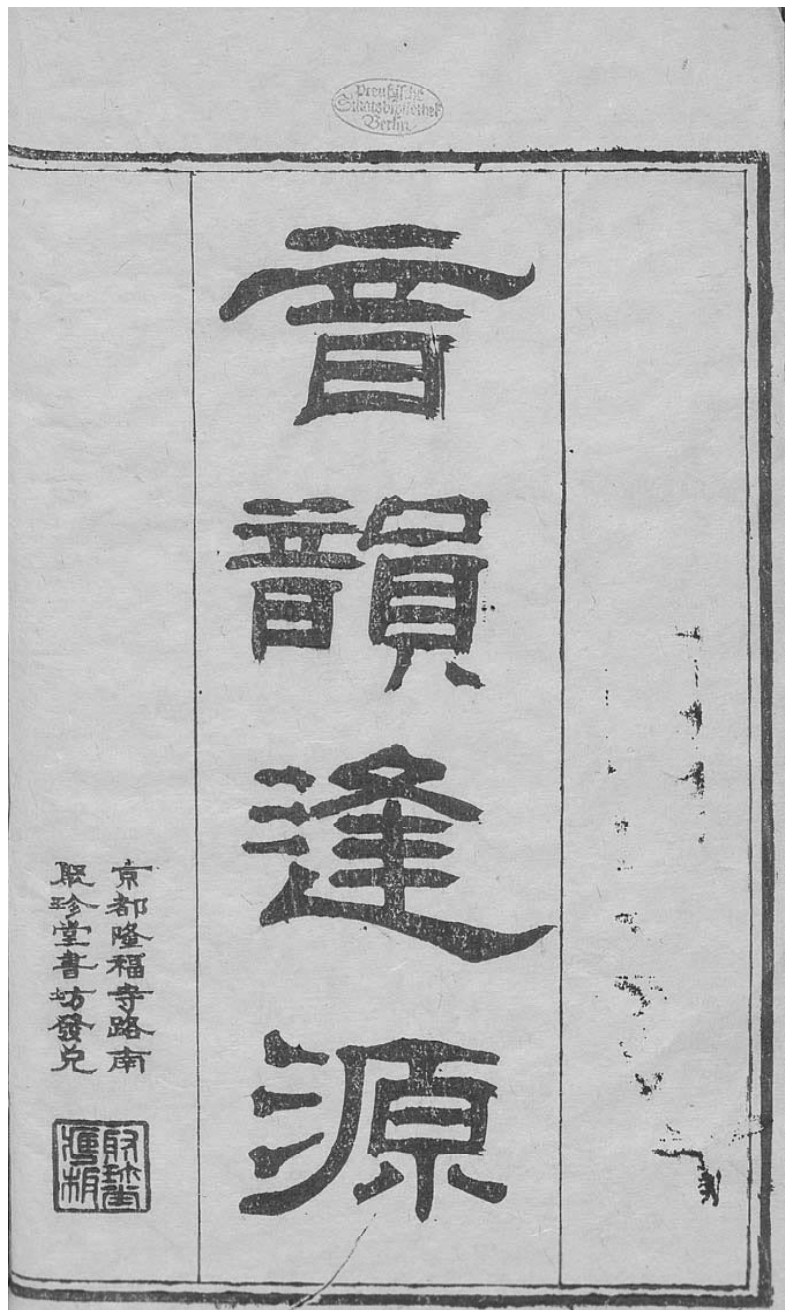 Preußische
Staatsbibliothek
Berlin
音韻逢源
京都隆福寺路南
聚珍堂書坊發兌